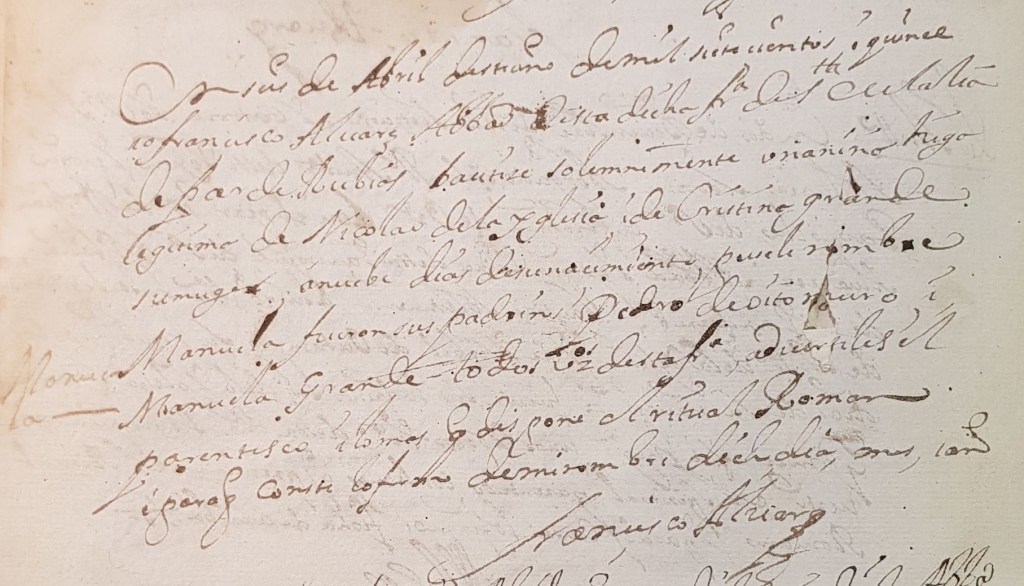 En seis de Abril destiaño de mil sietecientos i quince
io francisco Alvarez Abbad desta dicha fra de Sta Eulalia
de par de Rubias, bautise solemnimente una niña higa
legitima de Nicolas de la yglesia i de Cristina grande
su muger, a nuebe dias de su nacimiento, puseli nombre
Manuela fueron sus padrinos Pedro de Outomuro i
Manuela Grande todos vzos desta fra, adverticles el
parentisco i lo mas q dispone el ritual Roman
i para q consti lo firmo de mi nombri dicho dia, mes, i año
Francisco Alvarez
Manue
la